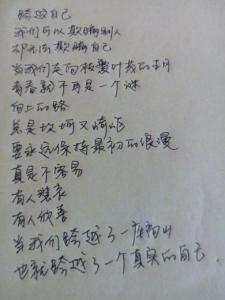 跨越自己
我们可以欺瞒别人
却无法欺瞒自己
当我们走向枝繁叶茂的五月
青春就不再是一个谜
向上的路
总是坎坷又崎岖
要永远保持最初的浪漫
真是不容易
有人悲哀
有人欣喜
当我们跨越了一座高山
也就跨越了一个真实的自己.